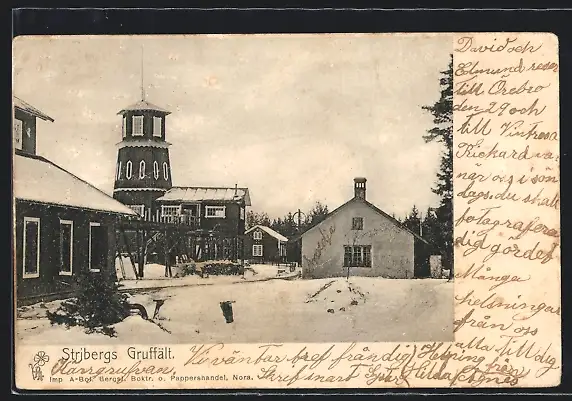 David och
Edmund reser
till Örebro
den 29 och
till Vintrosa
Rickard va
nar os i sön
dags. du skall
fotografera
dig gördet
Många
helsningar
från oss
alla till dig
Stribergs Gruffält.
Vi väntar bref från dig
Skrif snart Hilda Agnes
Imp. A-Bol. Bergsl. Boktr. o. Pappershandel, Nora.